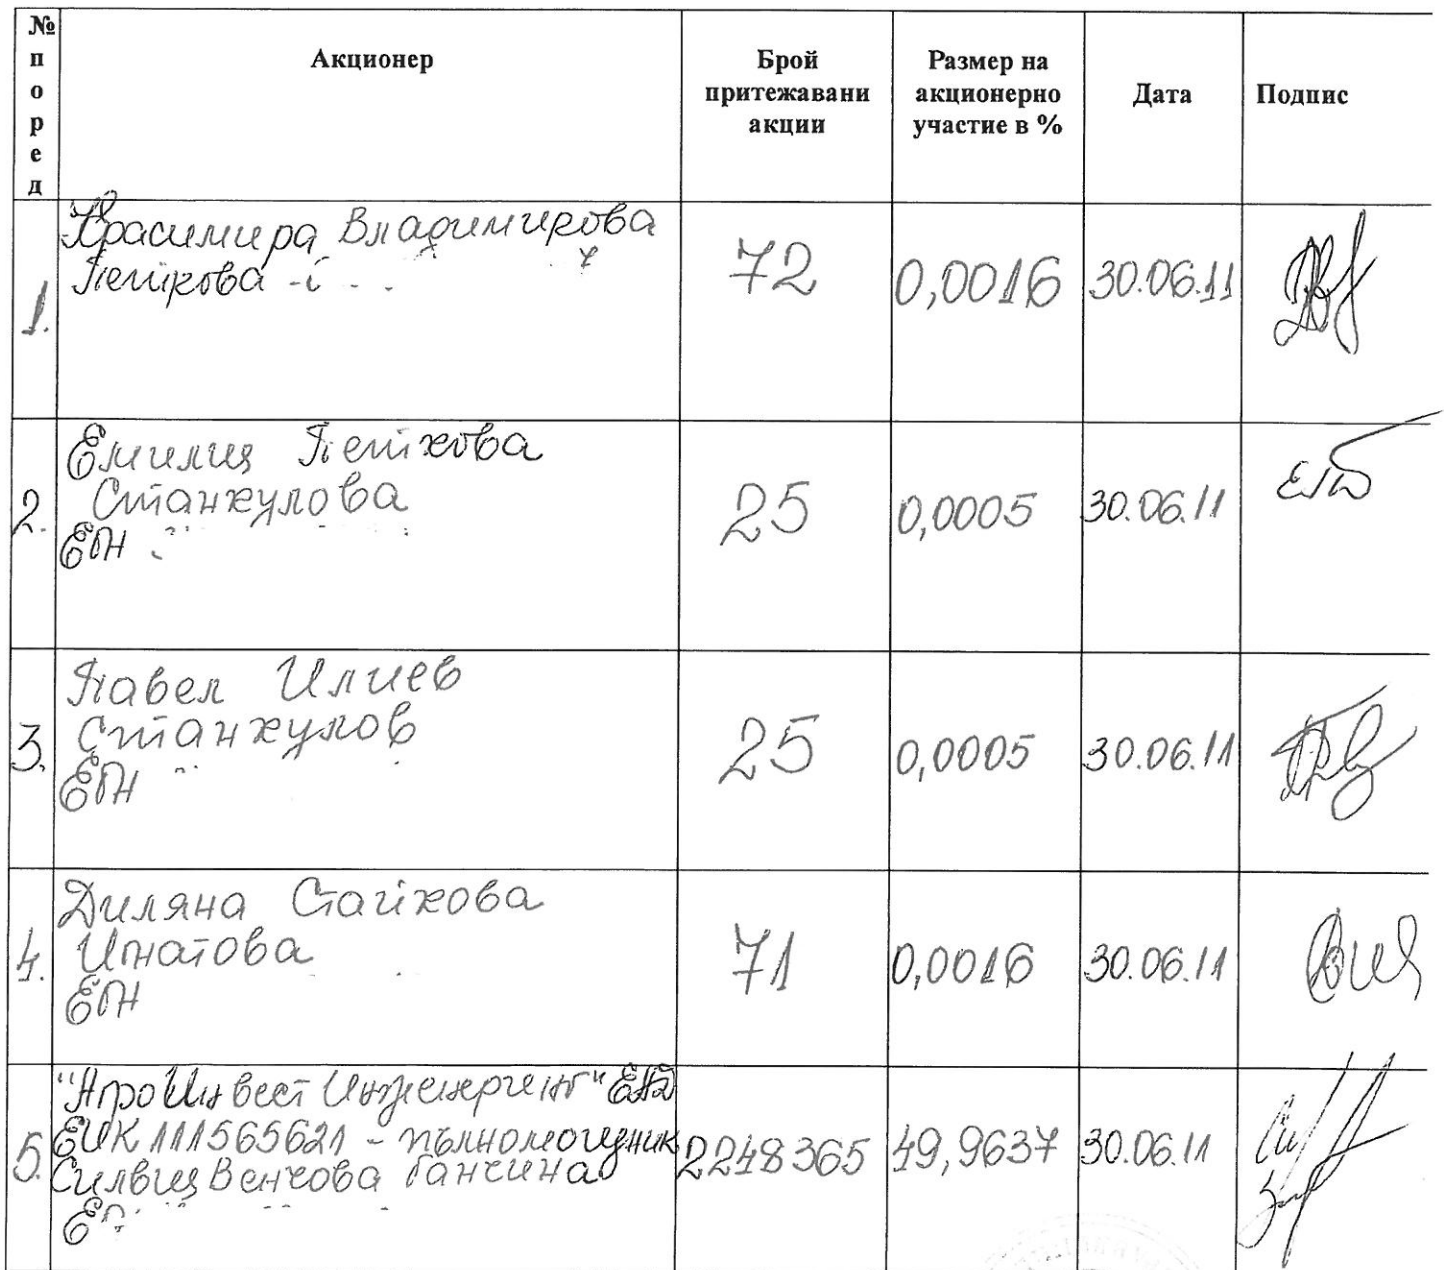 № поред
Акционер
Брой
притежавани
акции
Размер на
акционерно
участие в %
Дата
Подпис
1.
Красимира Владимирова
Петкова
72
0,0016
30.06.11
2.
Емилия Петкова
Станкулова
ЕГН
25
0,0005
30.06.11
3.
Павел Илиев
Станкулов
ЕГН
25
0,0005
30.06.11
4.
Диляна Стайкова
Игнатова
ЕГН
71
0,0016
30.06.11
5.
"АгроИнвест Инженеринг" ЕАД
ЕИК 111565621 - пълномощник
Силвия Венчова Ганчина
2248365
49,9637
30.06.11